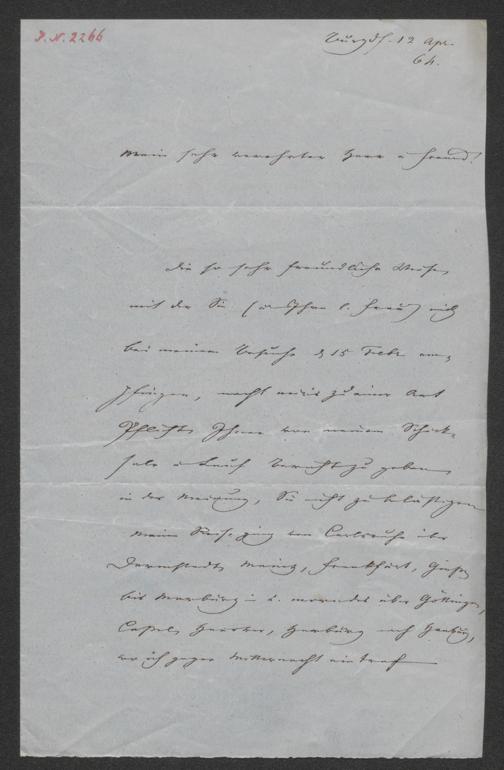 J. N. 2266
Burgdf. 12 Apr.
64.
Mein sehr verehrter Herr u Freund!
Die so sehr freundliche Weise,
mit der Sie (u Ihre l. Frau) mich
bei meinem Besuche d 15 Febr em-
pfingen, macht mirs zu einer Art
Pflicht, Ihnen von meinem Schick-
sale u Lauf Bericht zu geben
in der Meinung, Sie nicht zu belästigen
Meine Reise ging von Carlsruhe über
Darmstadt, Mainz, Frankfurt, Giessen
bis Marburg u. über Göttingen,
Cassel, Hanover, Harburg nach Hamburg,
wo ich gegen Mitternacht eintraf